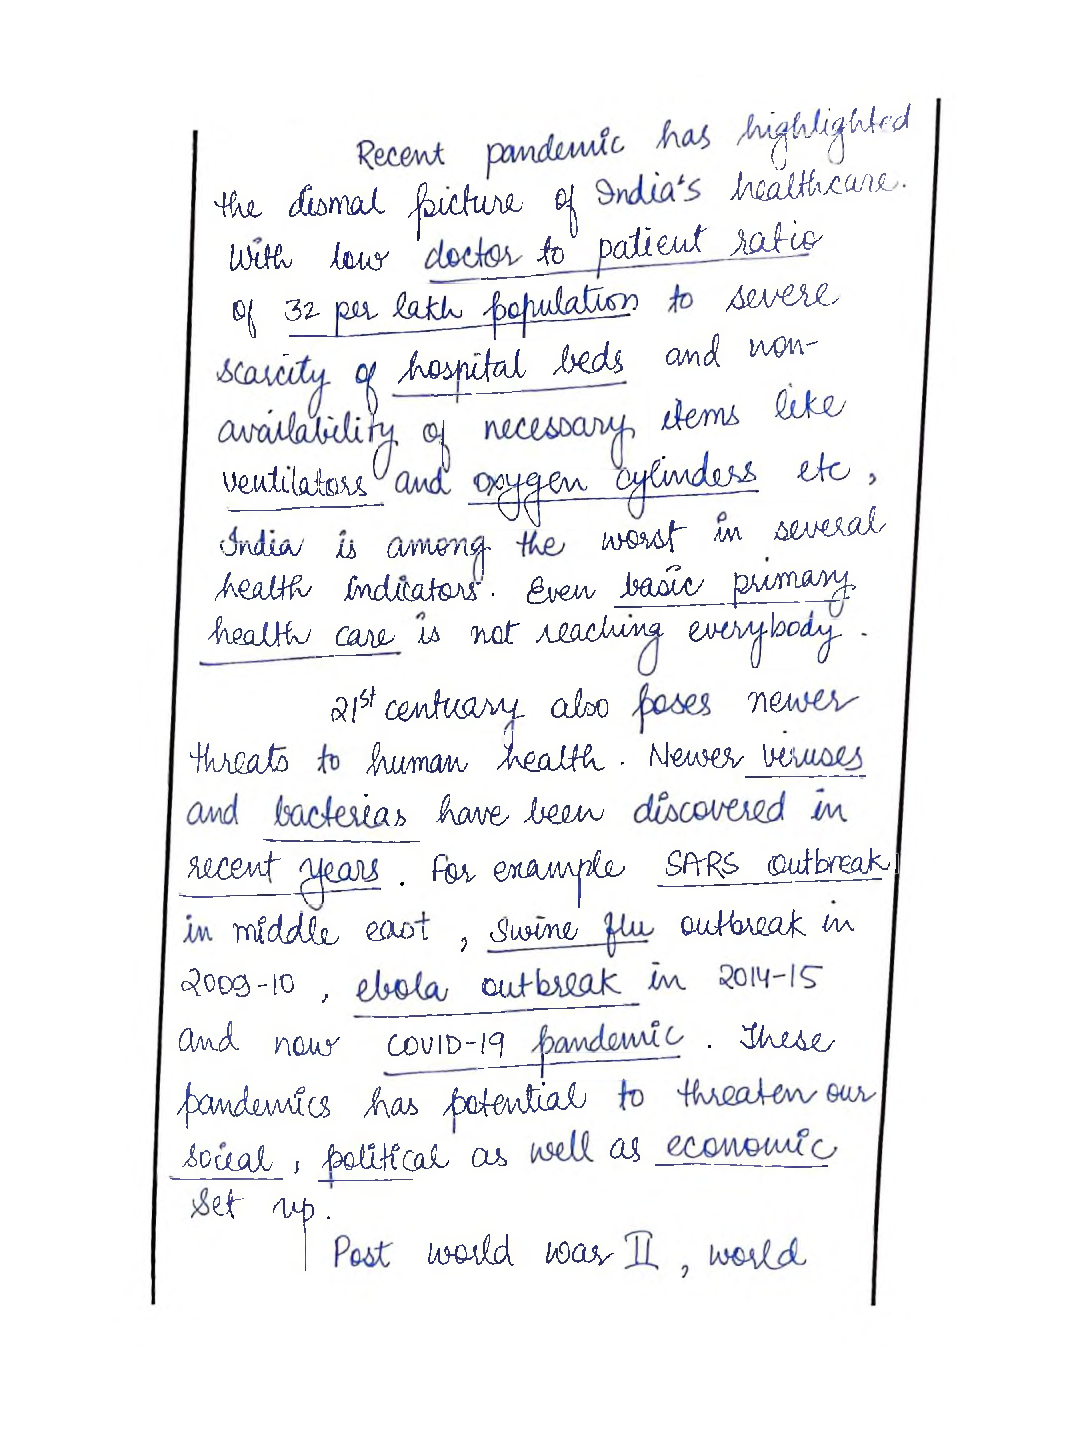 Recent pandemic has highlighted
the dismal picture of India's healthcare.
With low doctor to patient ratio
of 32 per lakh population to severe
scarcity of hospital beds and non-
availability of necessary items like
ventilators and oxygen cylinders etc,
India is among the worst in several
health indicators. Even basic primary
health care is not reaching everybody.
21st centuary also poses newer
threats to human health. Newer viruses
and bacterias have been discovered in
recent years. For example SARS outbreak
in middle east, Swine flu outbreak in
2009-10, ebola outbreak in 2014-15
and now COVID-19 pandemic. These
pandemics has potential to threaten our
social, political as well as economic
set up.
Post world war II, world